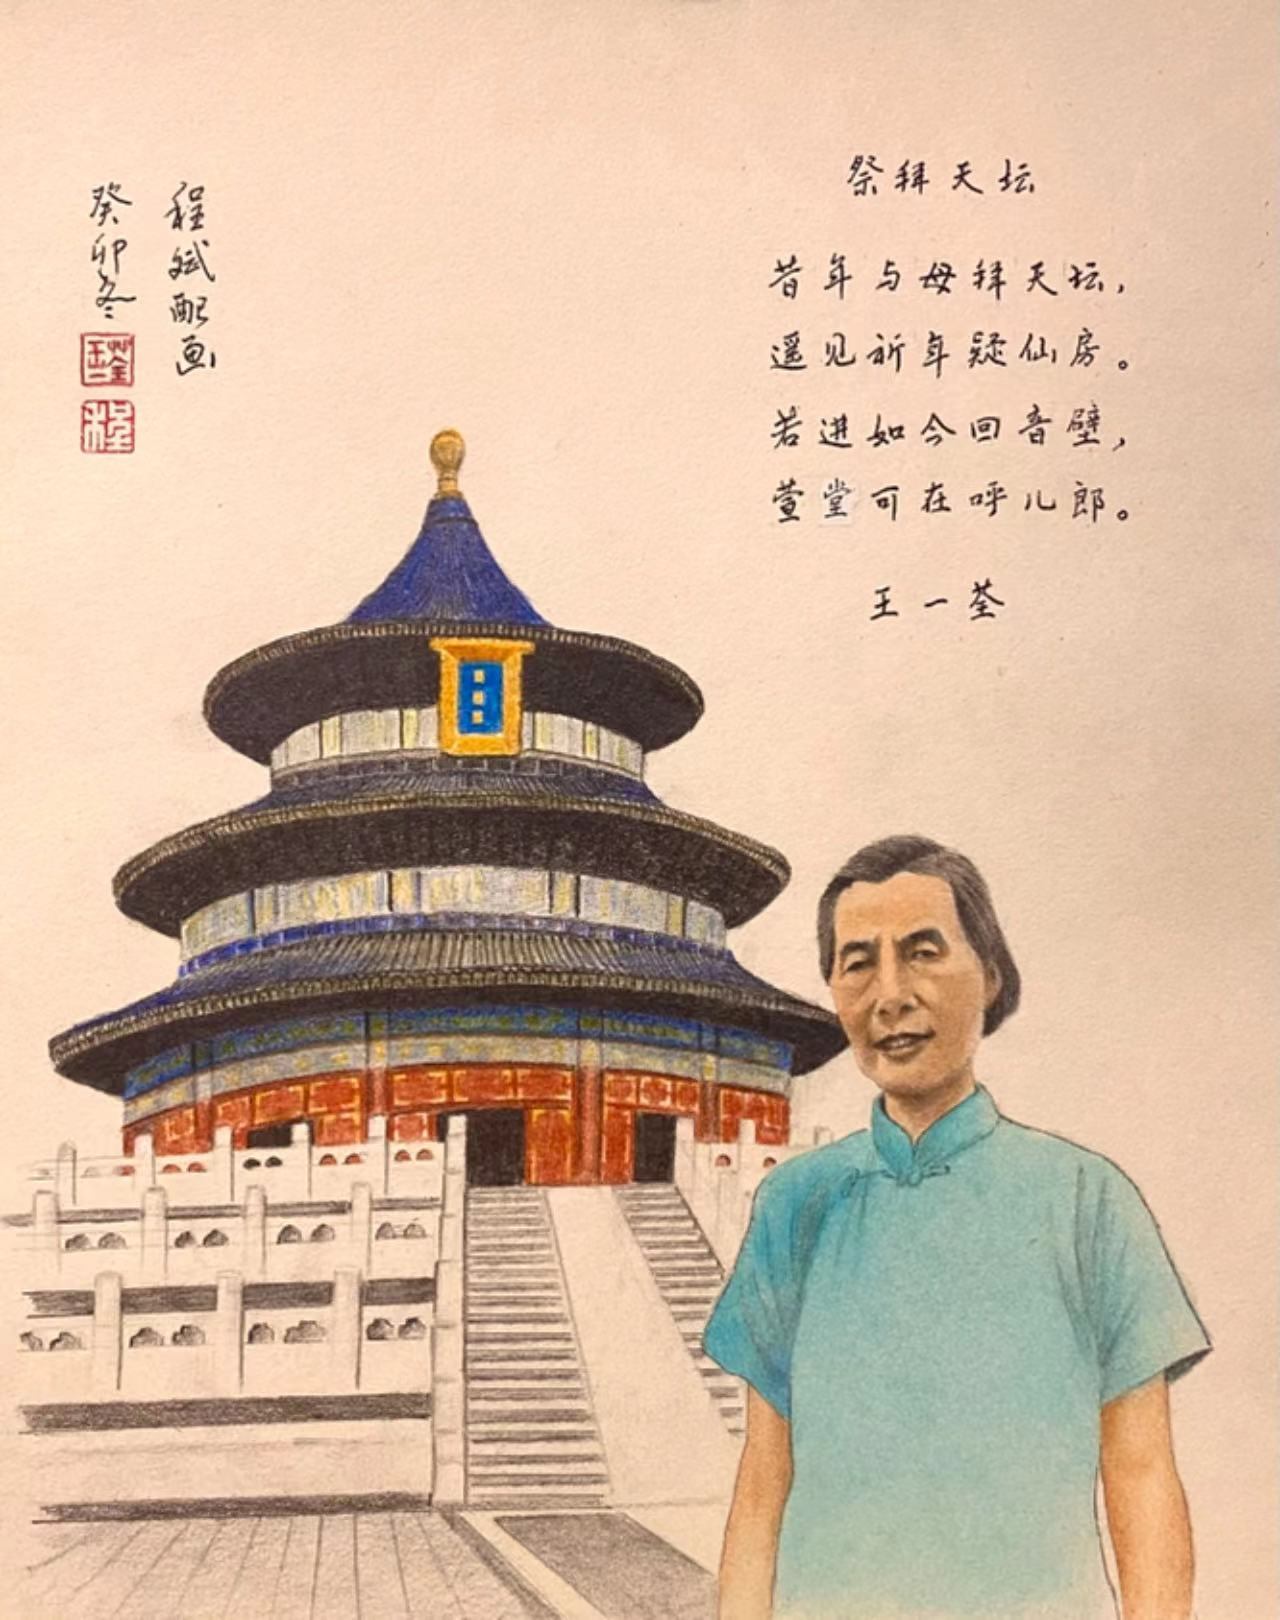 祭拜天坛
昔年与母拜天坛，
遥见祈年疑仙房。
若进如今回音壁，
萱堂可在呼儿郎。
王一荃
程斌配画
癸卯冬
王一荃
程